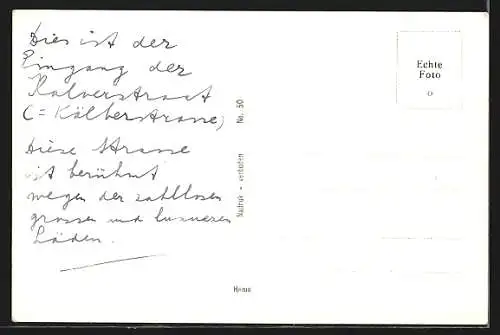 Dies ist der
Eingang der
Kalverstraat
(= Kälberstrasse)
Diese Strasse
ist berühmt
wegen der zahllosen
grossen und luxuriösen
Läden.
Nadruk - verboten No. 50
Echte
Foto